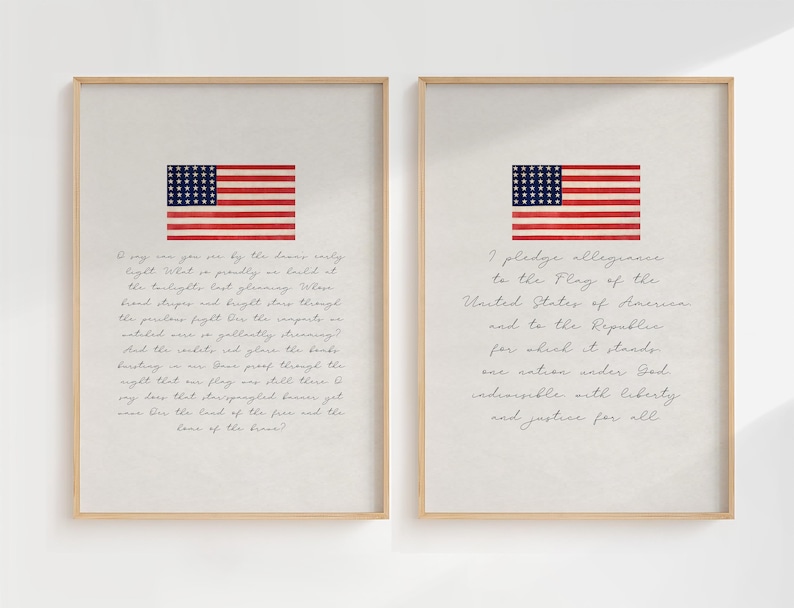 O say can you see by the dawn's early
light. What so proudly we haild at
the twilight's last gleaming. Whose
broad stripes and bright stars through
the perilous fight O'er the ramparts we
watched were so gallantly streaming?
And the rocket's red glare the bombs
bursting in air. Gave proof through the
night that our flag was still there. O
say does that star-spangled banner yet
wave O'er the land of the free and the
home of the brave?
I pledge allegiance
to the Flag of the
United States of America,
and to the Republic
for which it stands,
one nation under God
indivisible, with liberty
and justice for all